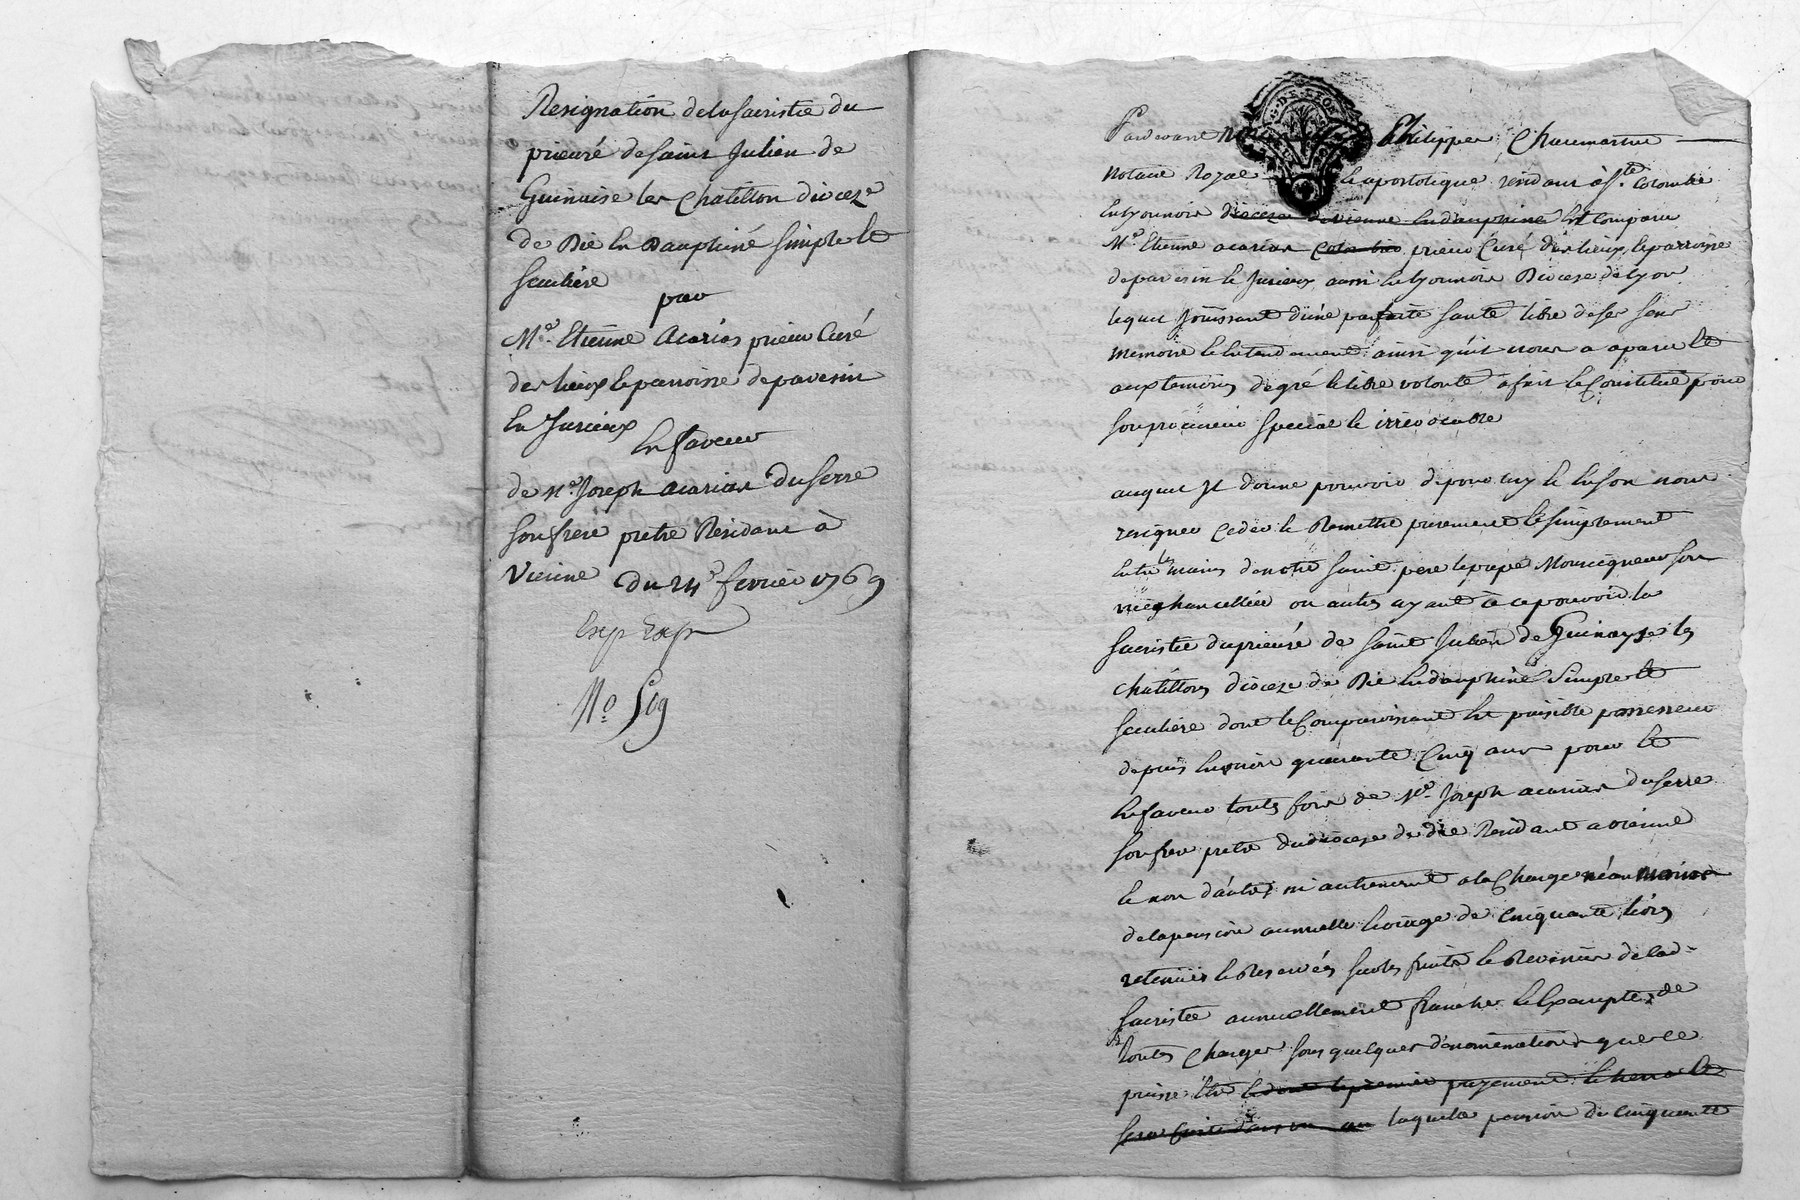 Resignation de la sacristie du
prieuré de saint Julien de
Guinaise les Chatillon dioceze
de Die en Dauphiné simple et
seculiere
par
Me. Etienne Acarias prieur Curé
des lieux et parroisse de pavesin
en Jurieux
en faveur
de Me. Joseph acarias Duserre
son frere pretre Residant à
Vienne du 24e fevrier 1769
Exp
No
Pardevant Philippe Chaumartin
notaire Royal et apostolique residant à Ste. Colombe
en lyonnois diocese de vienne en dauphiné est comparu
Me. Etienne acarias prieur Curé des lieux et parroisse
de pavesin et Jurieux aussi en lyonnois Diocese de lyon
lequel Jouissant d'une parfaite santé libre de ses sens
memoire et entendement ainsi qu'il nous a aparu et
aux temoins de gré et libre volonté a fait et Constitué pour
son procureur special et irrévocable
auquel Il donne pouvoir de pour luy et en son nom
resigner ceder et Remettre purement et simplement
entre les mains de notre saint pere le pape Monseigneur son
vicechancellier ou autre ayant à ce pouvoir la
sacristie du prieuré de saint Julien de Guinayse les
chatillon diocese de Die en dauphiné simple et
seculiere dont le Comparoissant est paisible possesseur
depuis environ quarante Cinq ans pour et
en faveur toutes fois de Me. Joseph acarias duserre
son frere pretre du diocese de die Residant a vienne
et non d'autre ni autrement a la Charge néanmoins
de la pension annuelle et viagere de cinquante livres
retenües et reservées sur les fruits et Revenus de lad.
sacristie annuellement franche et exempte de
toutes charges sous quelques dénominations que ce
puisse être et dont le premier payement et
sera fait dans un an laquelle pension de cinquante